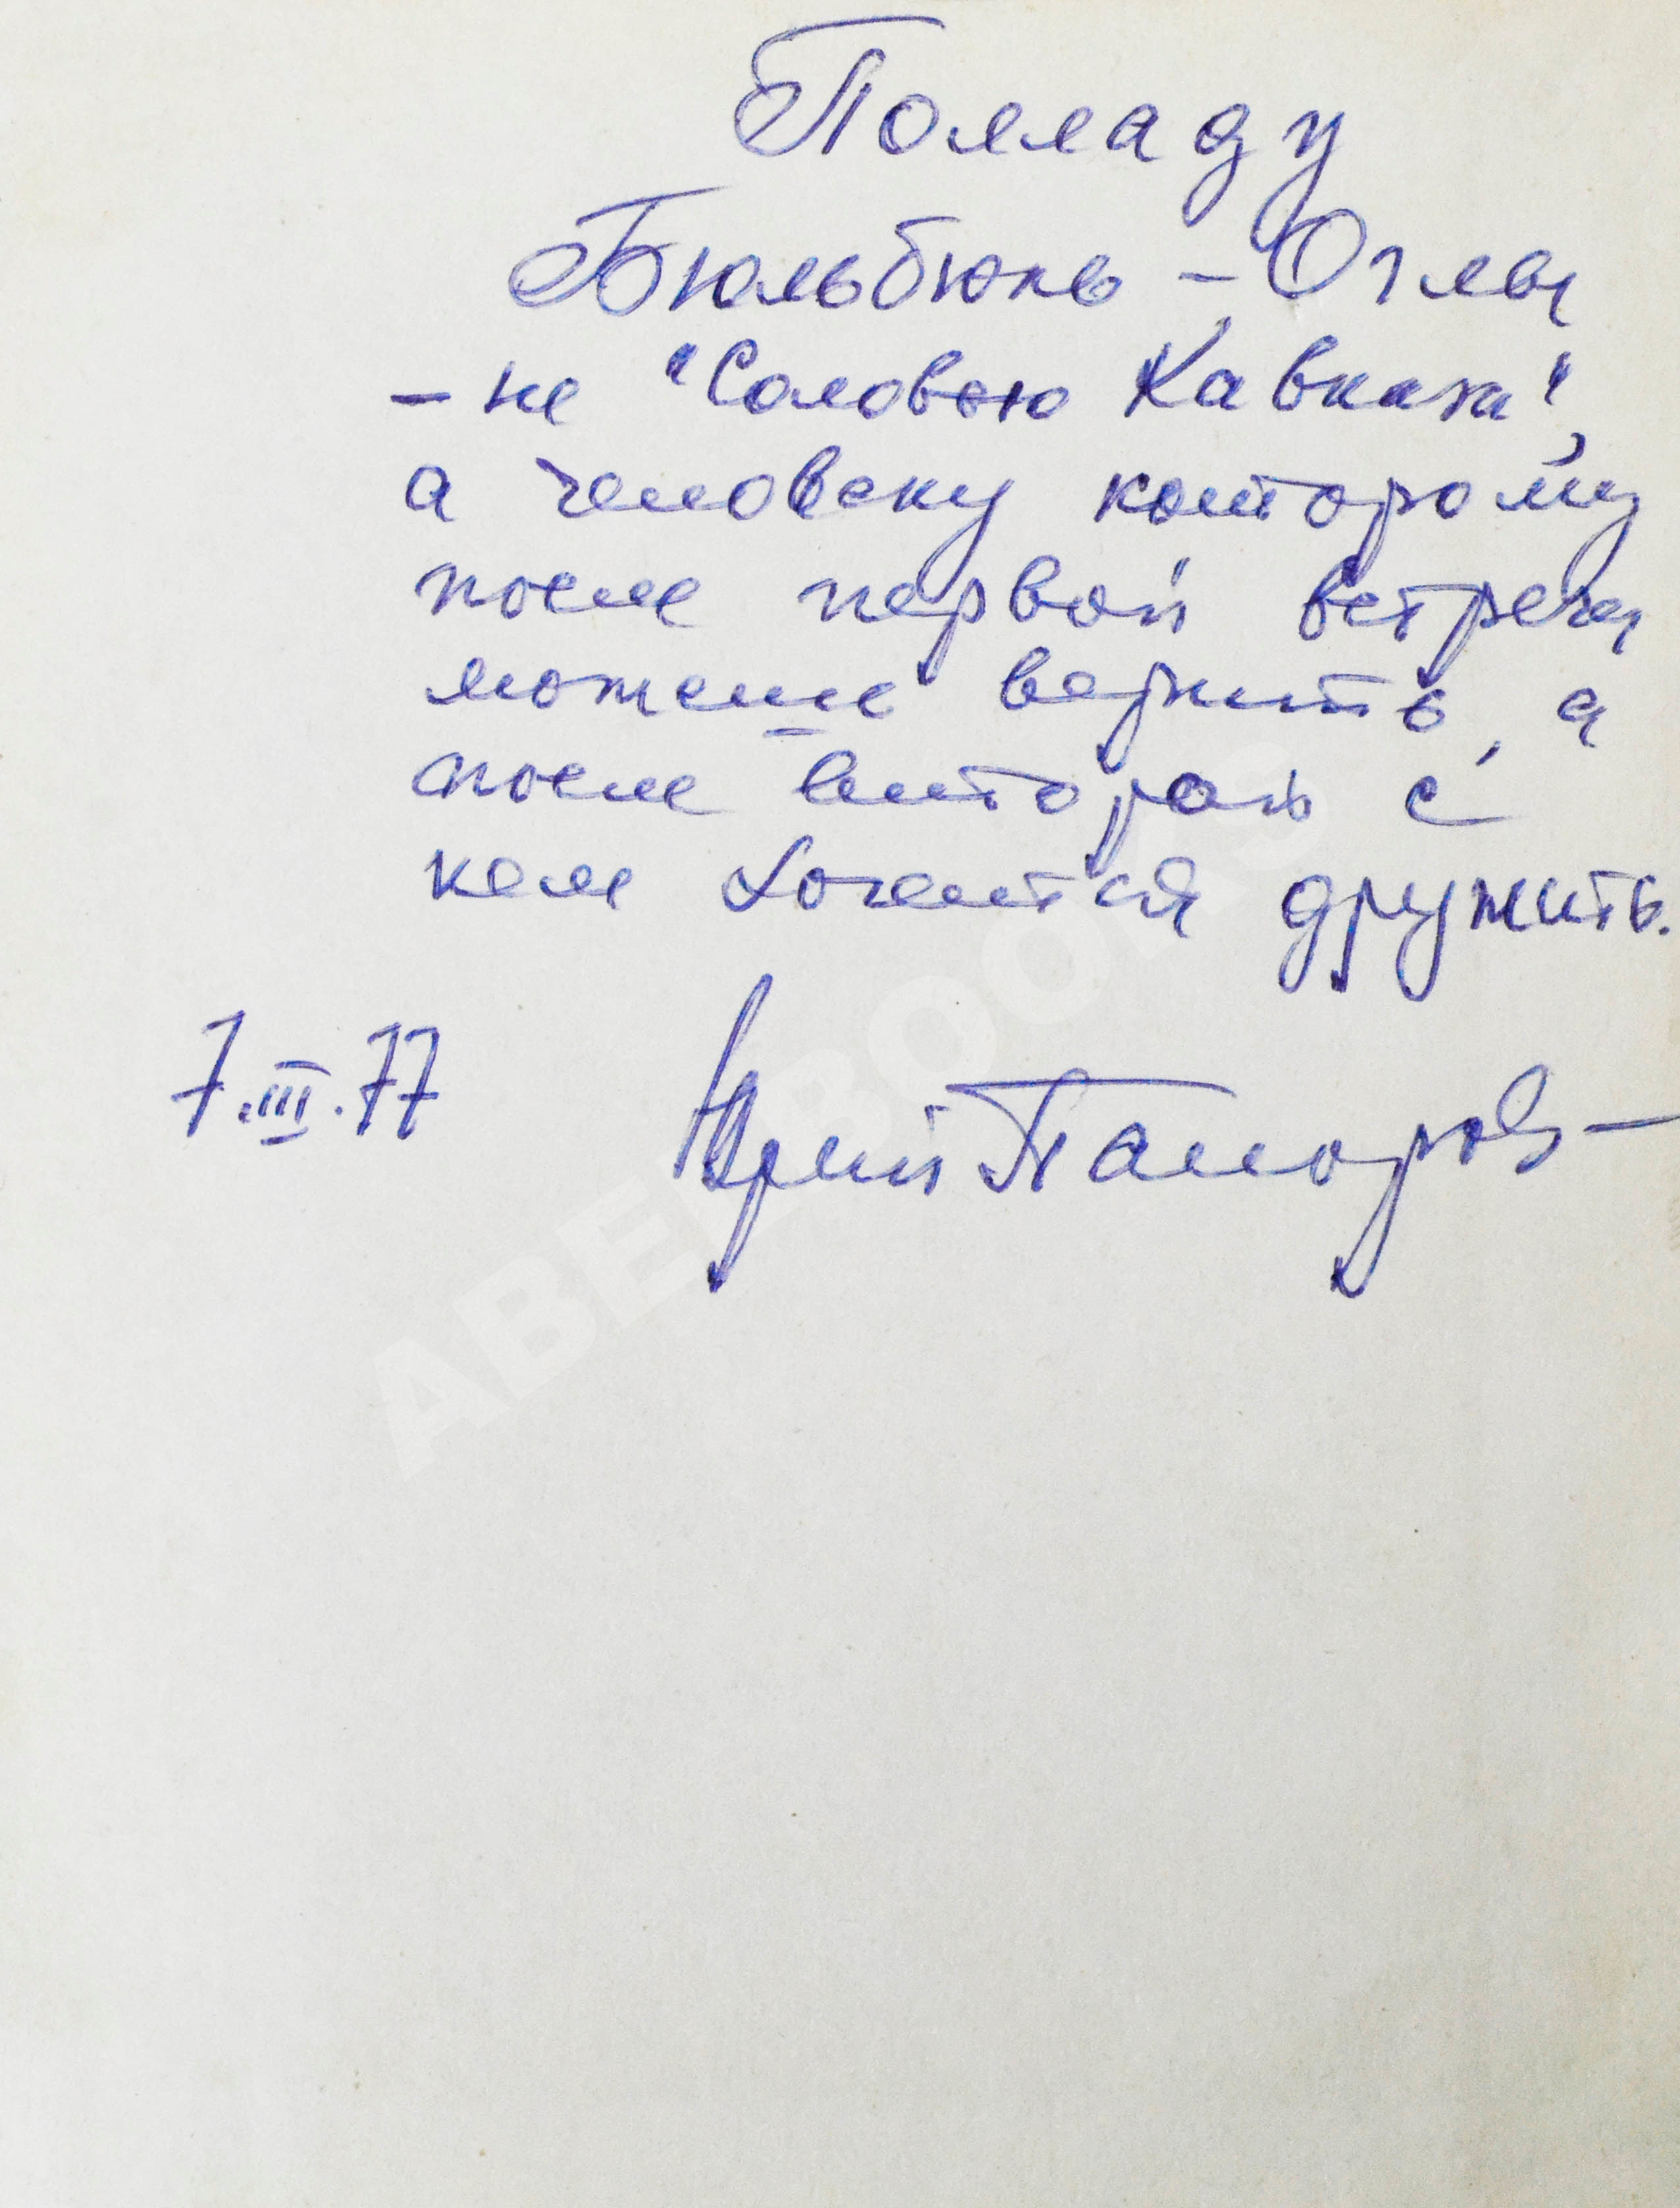 Полладу
Бюльбюль-Оглы
- не "Соловью Кавказа",
а человеку которому
после первой встречи
можешь верить, а
после второй с
кем хочется дружить.
7.III.77 Юрий Паморов
ABEBOOKS